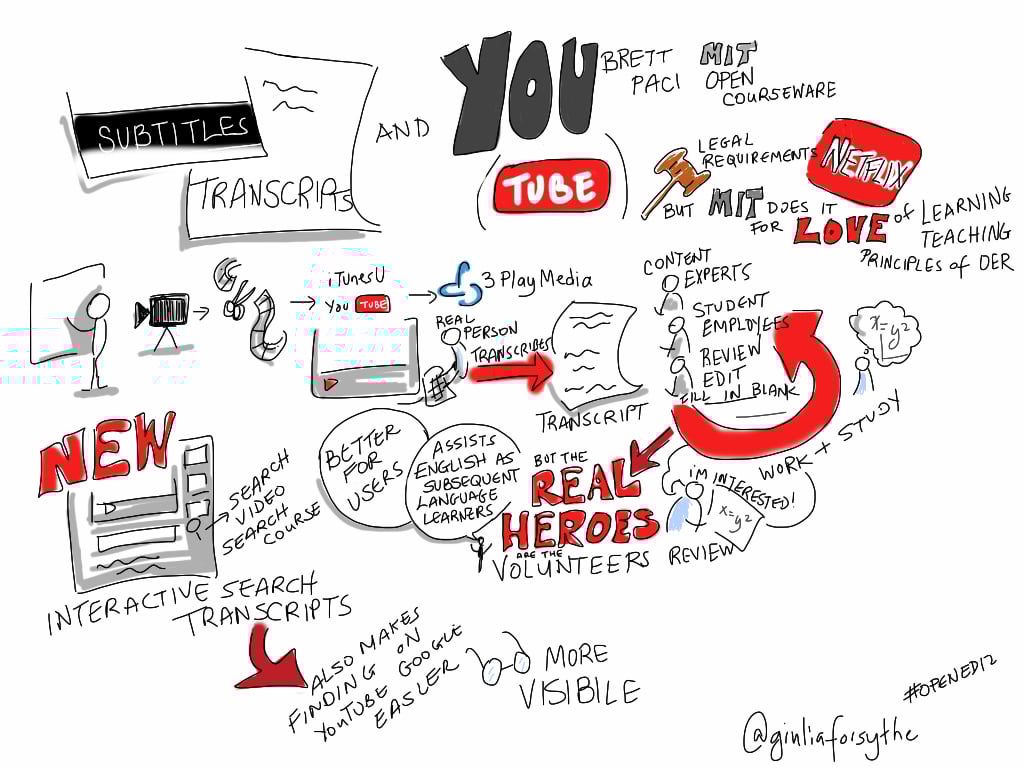 SUBTITLES
TRANSCRIPTS
AND
YOU
TUBE
BRETT
PACI
MIT
OPEN
COURSEWARE
LEGAL
REQUIREMENTS
NETFLIX
BUT MIT DOES IT
FOR LOVE of LEARNING
TEACHING
PRINCIPLES of OER
iTunesU
YOU TUBE
3 Play Media
REAL
PERSON
TRANSCRIBES
TRANSCRIPT
CONTENT
EXPERTS
STUDENT
EMPLOYEES
REVIEW
EDIT
FILL IN BLANK
x=y²
WORK + STUDY
NEW
SEARCH
VIDEO
SEARCH
COURSE
INTERACTIVE SEARCH
TRANSCRIPTS
BETTER
FOR
USERS
ASSISTS
ENGLISH AS
SUBSEQUENT
LANGUAGE
LEARNERS
BUT THE
REAL
HEROES
ARE THE
VOLUNTEERS REVIEW
I'M INTERESTED!
x=y²
ALSO MAKES
FINDING ON
YOUTUBE GOOGLE
EASLER
MORE
VISIBILE
#OPENED12
@giuliaforsythe